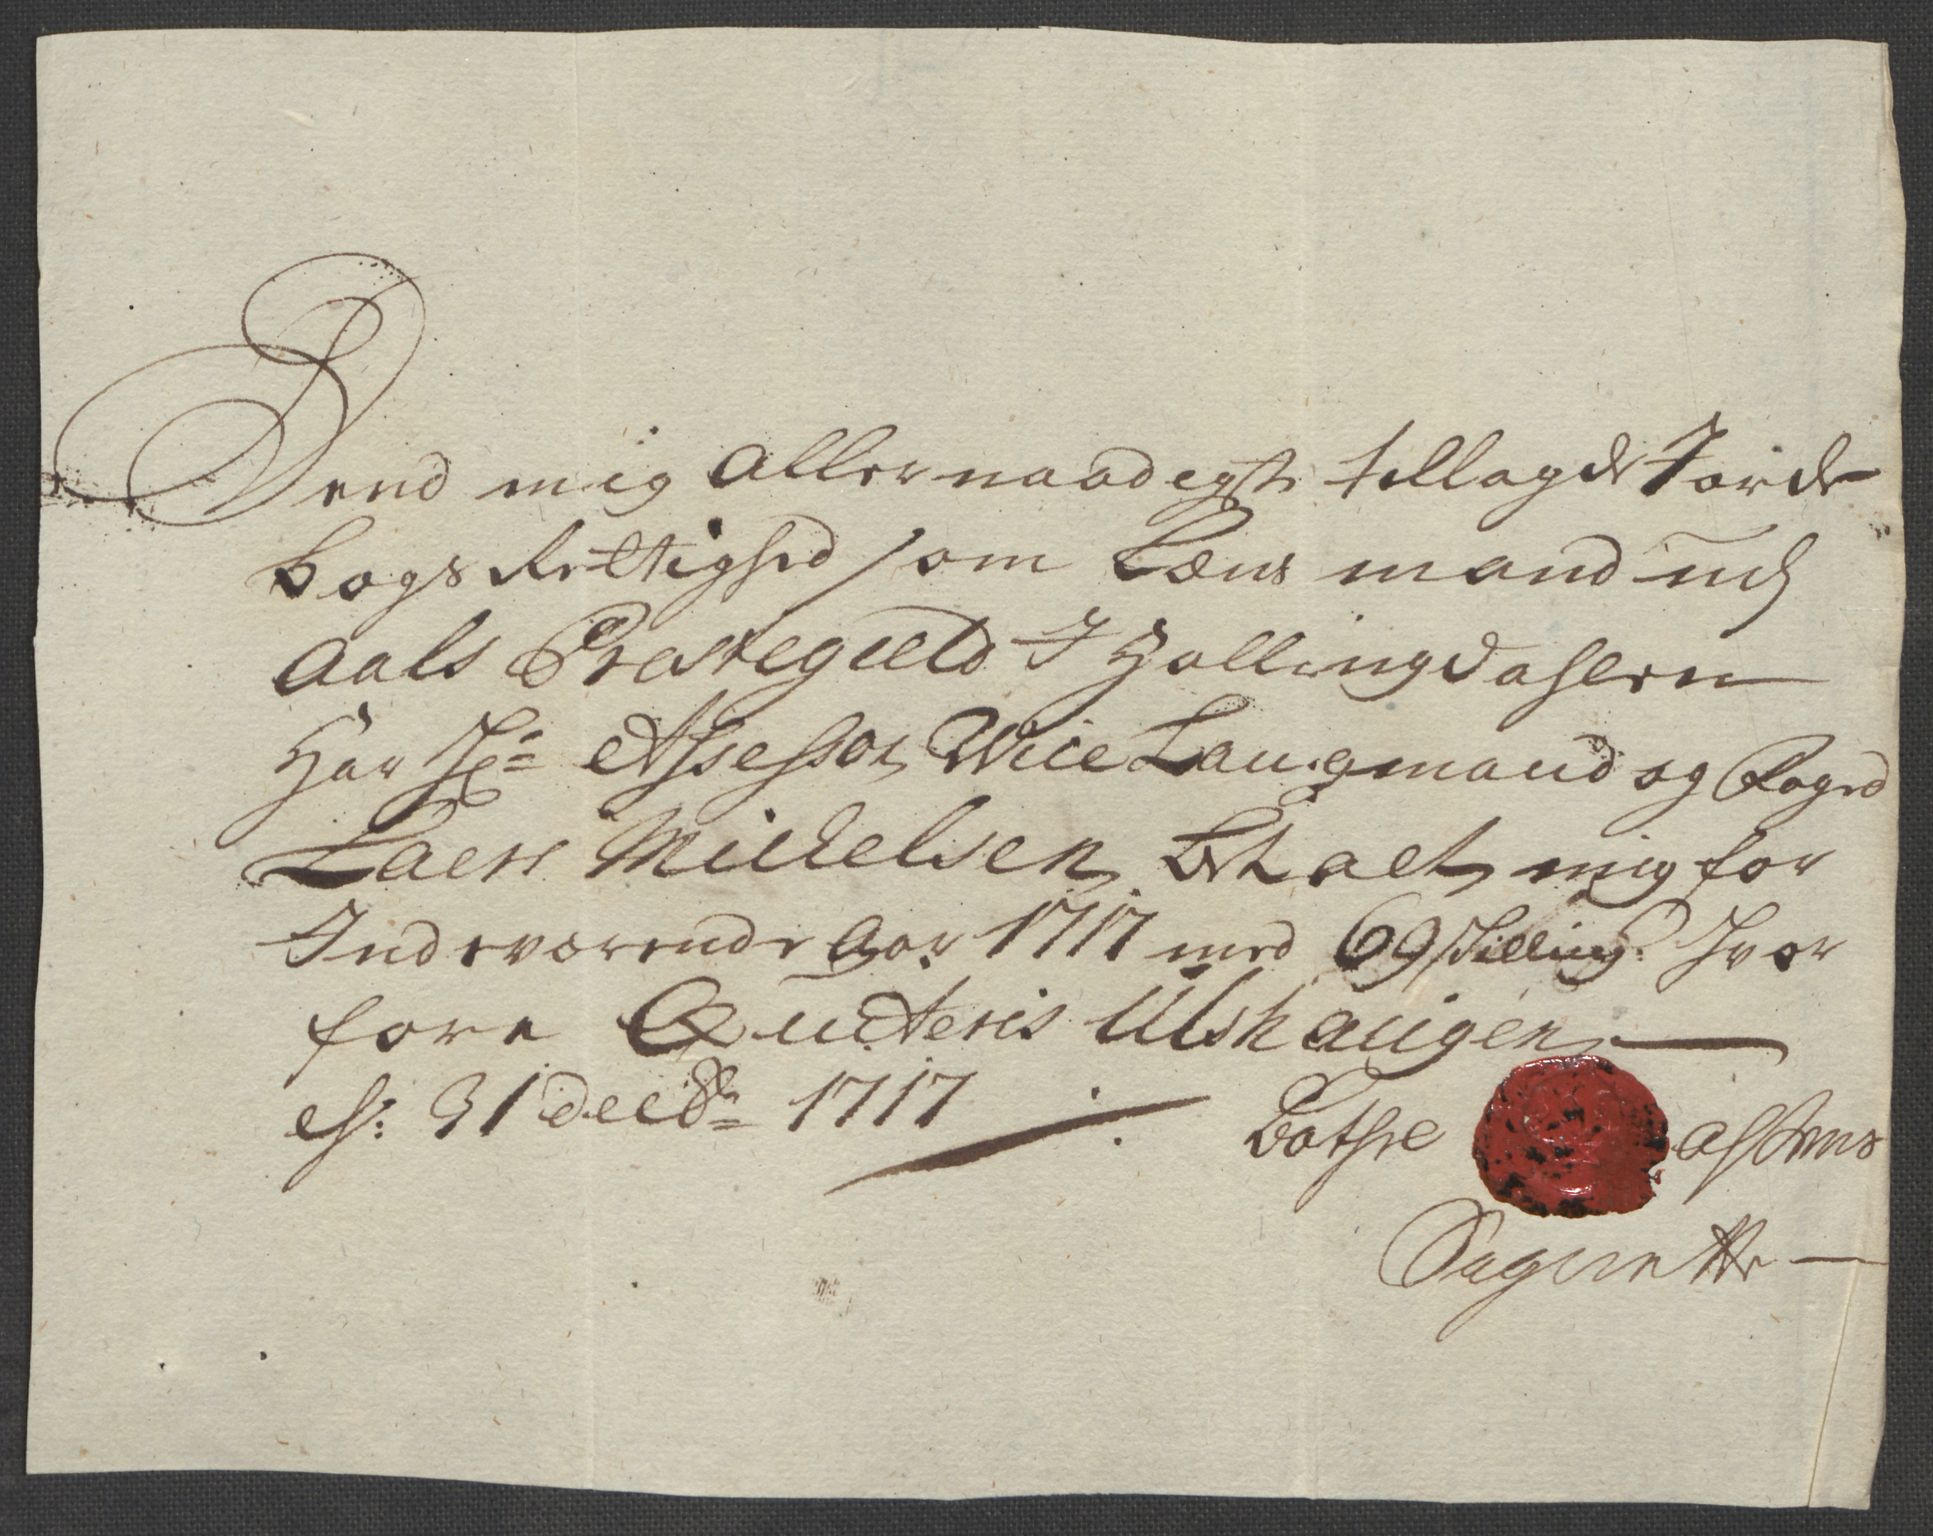 Dend mig Allernaadegste tillagde Jorde
bogs Rettighed som Lænsmand udj
Aals Præstegield I Hallingdahlen
Har Hr: Assessor Vice Laugmand og Foged
Laers Mickelsen betaelt mig for
Indeværende Aar 1717 med 69 skilling hvor
fore Qvitteris Ulshaugen
d: 31 decbr: 1717
Bothe